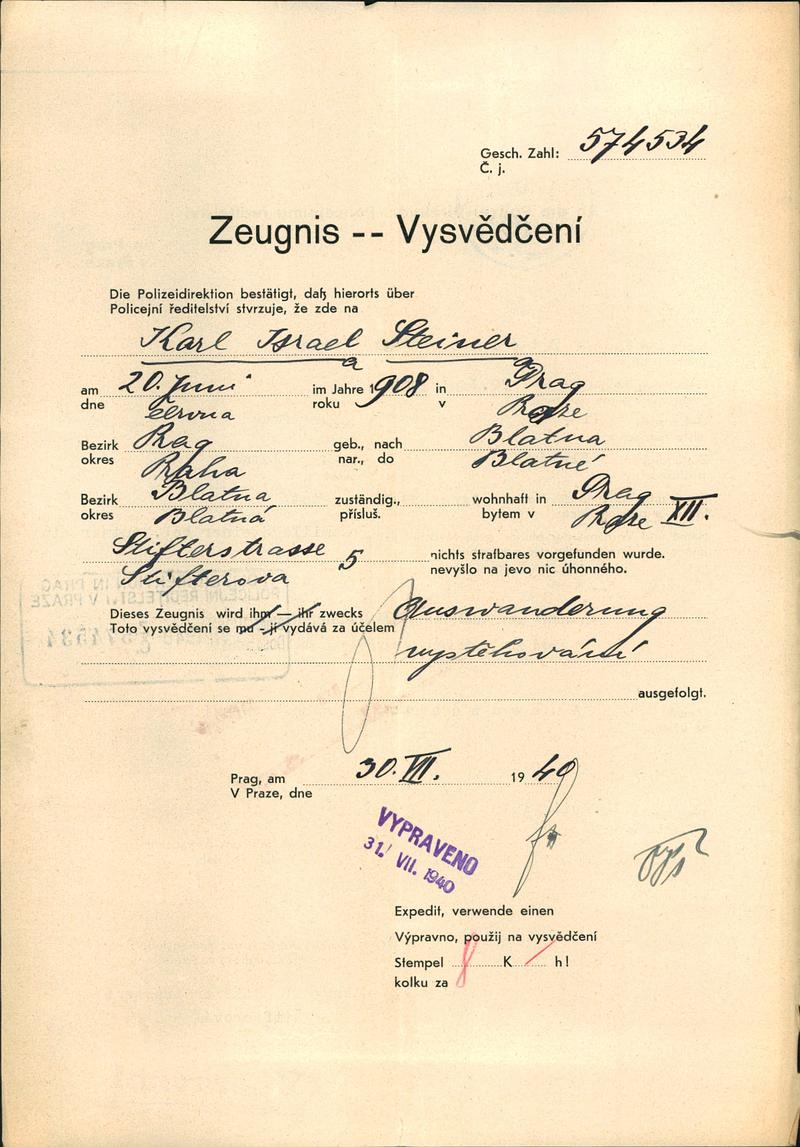 Gesch. Zahl: 574534
Č. j.
Zeugnis -- Vysvědčení
Die Polizeidirektion bestätigt, daß hierorts über
Policejní ředitelství stvrzuje, že zde na
Karl Israel Steiner
am 20. Juni im Jahre 1908 in Prag
dne června roku v Praze
Bezirk Prag geb., nach Blatna
okres Praha nar., do Blatné
Bezirk Blatna zuständig., wohnhaft in Prag
okres Blatná přísluš. bytem v Praze XII.
Stifterstrasse 5 nichts strafbares vorgefunden wurde.
Stifterova nevyšlo na jevo nic úhonného.
Dieses Zeugnis wird ihm — ihr zwecks Auswanderung
Toto vysvědčení se mu - jí vydává za účelem
vystěhování
ausgefolgt.
Prag, am 30. VII. 1940
V Praze, dne
VYPRAVENO
31. VII. 1940
Expedit, verwende einen
Výpravno, použij na vysvědčení
Stempel 8 K h!
kolku za